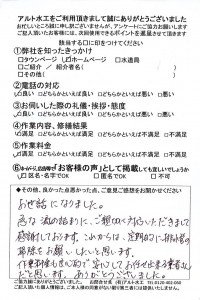 アルト水工をご利用頂きまして誠にありがとうございました
お忙しいところ誠に申し訳ございませんが、アンケートにご協力お願いします
ご記入頂いたお客様には、次回使用できるポイントを進呈させて頂きます
該当する□に印をつけてください
①弊社を知ったきっかけ
□タウンページ □ホームページ □水道局
□ご紹介／紹介者名（ ）
□その他（ ）
②電話の対応
□良い □どちらかといえば良い □どちらかといえば悪い □悪い
③お伺いした際の礼儀・挨拶・態度
□良い □どちらかといえば良い □どちらかといえば悪い □悪い
④作業内容、修繕結果
□満足 □どちらかといえば満足 □どちらかといえば不満足 □不満足
⑤作業料金
□満足 □どちらかといえば満足 □どちらかといえば不満足 □不満足
「お客様の声」として掲載しても宜しいでしょうか
□氏名・名字でOK □匿名でOK □不可
◆その他、良かった点悪かった点、ご意見ご感想をお聞かせください
お世話になりました。
急な 流の詰まりに ご親切に対応いただきまして
感謝しております。これからは、定期的に排水管の
掃除をお願い したいと思います。
だと思います。ありがとうございました。
ご記入ありがとうございました。